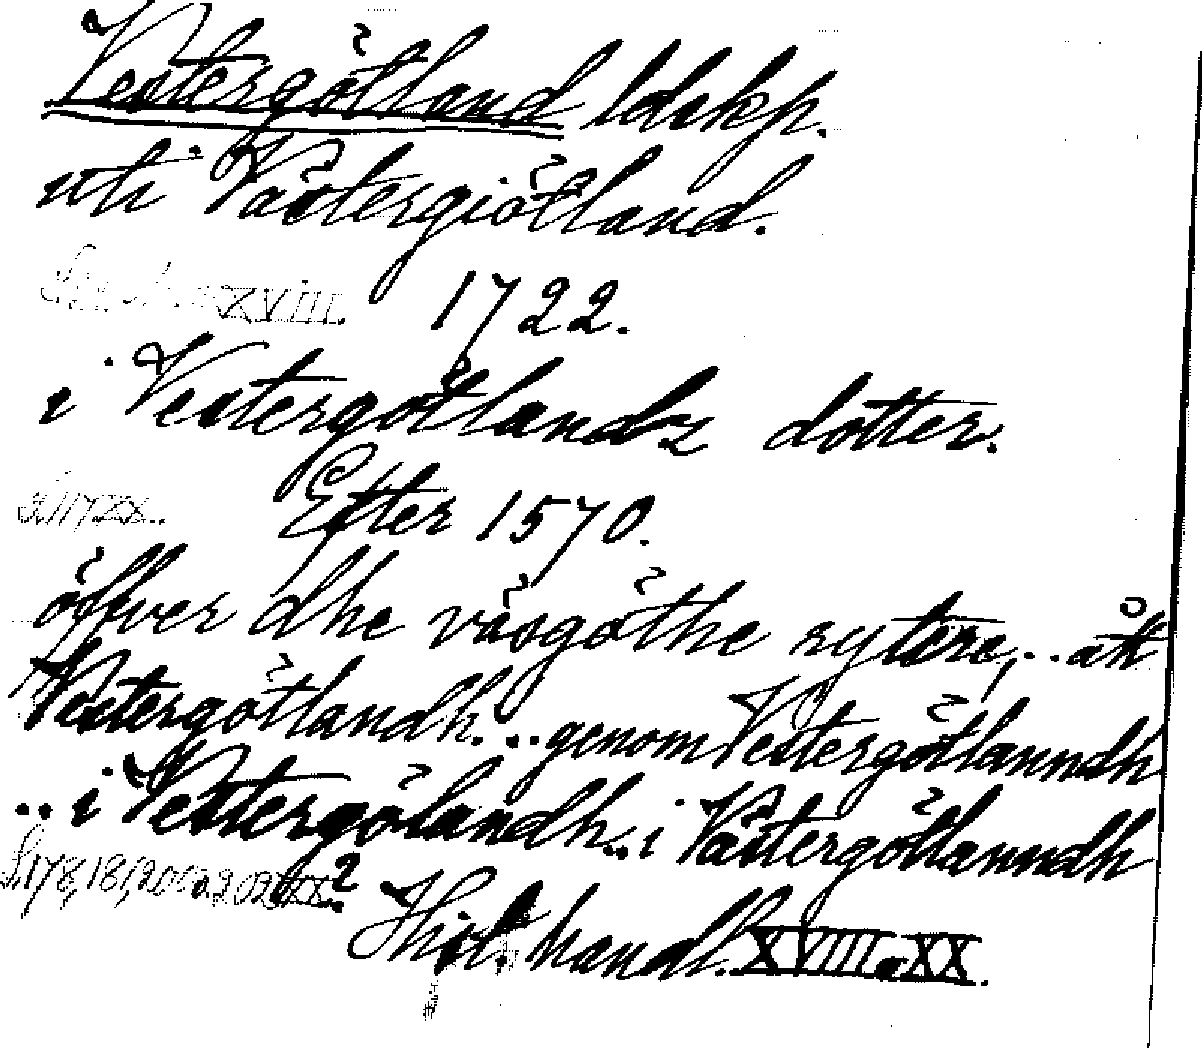 Vestergötland ldskp.
uti Västergiötland.
XVIII. 1722.
i Vestergötlandz dotter.
S. 117 XX. Efter 1570.
öffver dhe väsgöthe rytere, .. åt
Vestergötlandh. .. genom Vestergötlanndh
.. i Vestergölandh .. i Västergötlanndh
S. 178, 181, 200 a. 202 XX.²
Hist. handl. XVIII a XX.